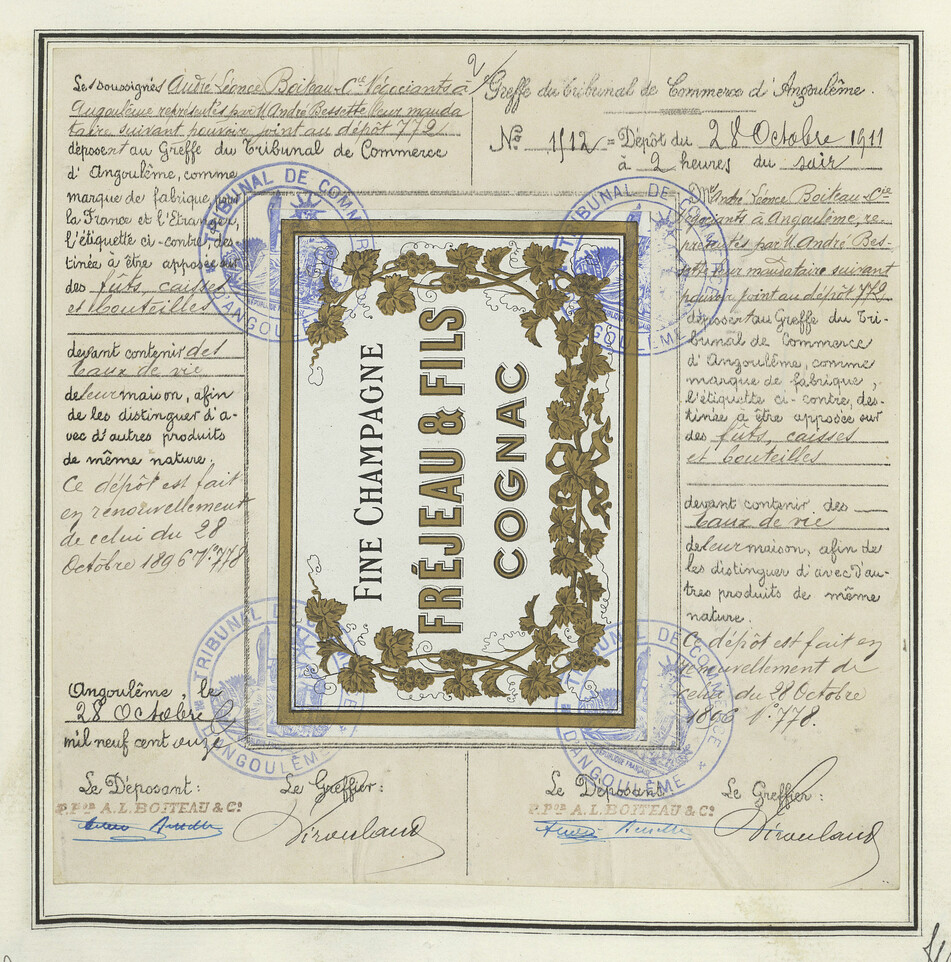 Les soussignés André Léonce Boiteau & Cie Négociants à
Angoulême représentés par M André Bessette leur manda
taire suivant pouvoir joint au dépôt 772
déposent au Greffe du Tribunal de Commerce
d'Angoulême, comme
marque de fabrique pour
la France et l'Etranger,
l'étiquette ci-contre, des-
tinée à être apposée sur
des fûts, caisses
et bouteilles
devant contenir des
eaux de vie
de leur maison, afin
de les distinguer d'a-
vec d'autres produits
de même nature.
Ce dépôt est fait
en renouvellement
de celui du 28
Octobre 1896 N° 778
Angoulême, le
28 Octobre
mil neuf cent onze
Le Déposant:
P. Pon A. L. BOITEAU & Co
André Bessette
Le Greffier:
FINE CHAMPAGNE
FRÉJEAU & FILS
COGNAC
TRIBUNAL DE COMMERCE
D'ANGOULÊME
RÉPUBLIQUE FRANÇAISE
TRIBUNAL DE COMMERCE
D'ANGOULÊME
TRIBUNAL DE COMMERCE
D'ANGOULÊME
RÉPUBLIQUE FRANÇAISE
TRIBUNAL DE COMMERCE
D'ANGOULÊME
RÉPUBLIQUE FRANÇAISE
Greffe du Tribunal de Commerce d'Angoulême.
No 1512 = Dépôt du 28 Octobre 1911
à 2 heures du soir
André Léonce Boiteau & Cie
Négociants à Angoulême, re-
présentés par M André Bes-
sette leur mandataire suivant
pouvoir joint au dépôt 772
déposent au Greffe du Tri-
bunal de Commerce
d'Angoulême, comme
marque de fabrique,
l'étiquette ci-contre, des-
tinée à être apposée sur
des fûts, caisses
et bouteilles
devant contenir des
eaux de vie
de leur maison, afin de
les distinguer d'avec d'au-
tres produits de même
nature.
Ce dépôt est fait en
renouvellement de
celui du 28 Octobre
1896 N° 778.
Le Déposant:
P. Pon A. L. BOITEAU & Co
André Bessette
Le Greffier: